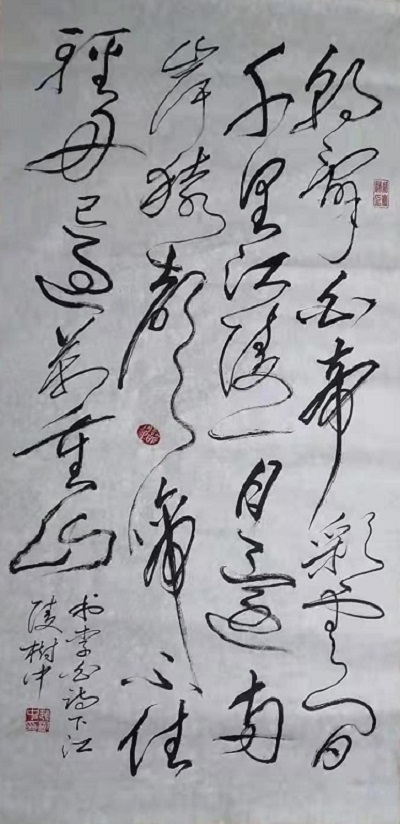 朝辭白帝彩雲間
千里江陵一日還兩
岸猿聲啼不住
輕舟已過萬重山
书李白诗下江
陵樹中